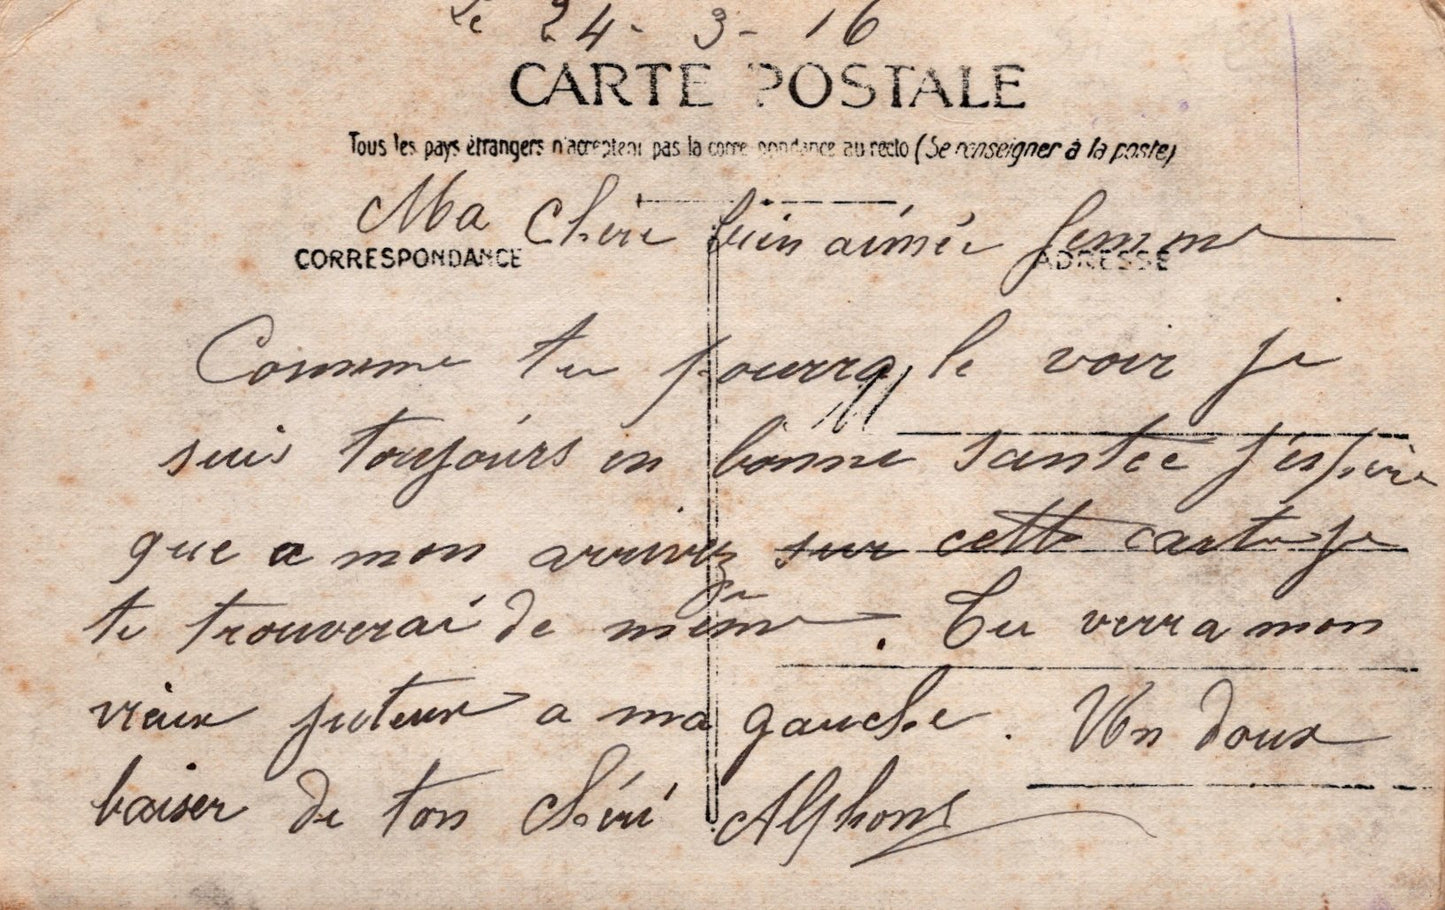 Le 24 - 3 - 16
CARTE POSTALE
Tous les pays étrangers n'acceptent pas la correspondance au recto (Se renseigner à la poste)
Ma Chère bien aimée femme
CORRESPONDANCE
ADRESSE
Comme tu pourra le voir je
suis toujours en bonne santée j'éspère
que a mon arrivez sur cette carte je
te trouverai de même. Tu verra mon
vieux a ma gauche. Un doux
baiser de ton chéri Alphons